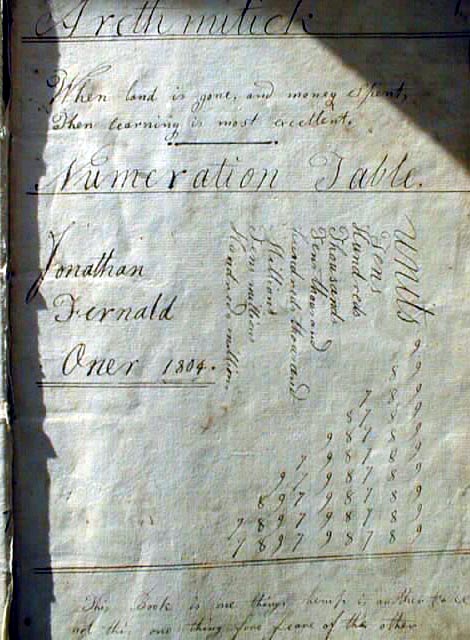 Arethmitick
When land is gone, and money spent,
Then learning is most excellent.
Numeration Table.
Jonathan
Fernald
Oner 1804.
Units
Tens
Hundreds
Thousands
Ten thousand
hundred thousand
Millions
Ten million
Hundred million
9
8 9
7 8 9
8 7 8 9
9 8 7 8 9
7 9 8 7 8 9
9 7 9 8 7 8 9
8 9 7 9 8 7 8 9
7 8 9 7 9 8 7 8 9
7 8 9 7 9 8 7 8 9
This Book is one thing hemp is another
not thi one thing fore feare of the other